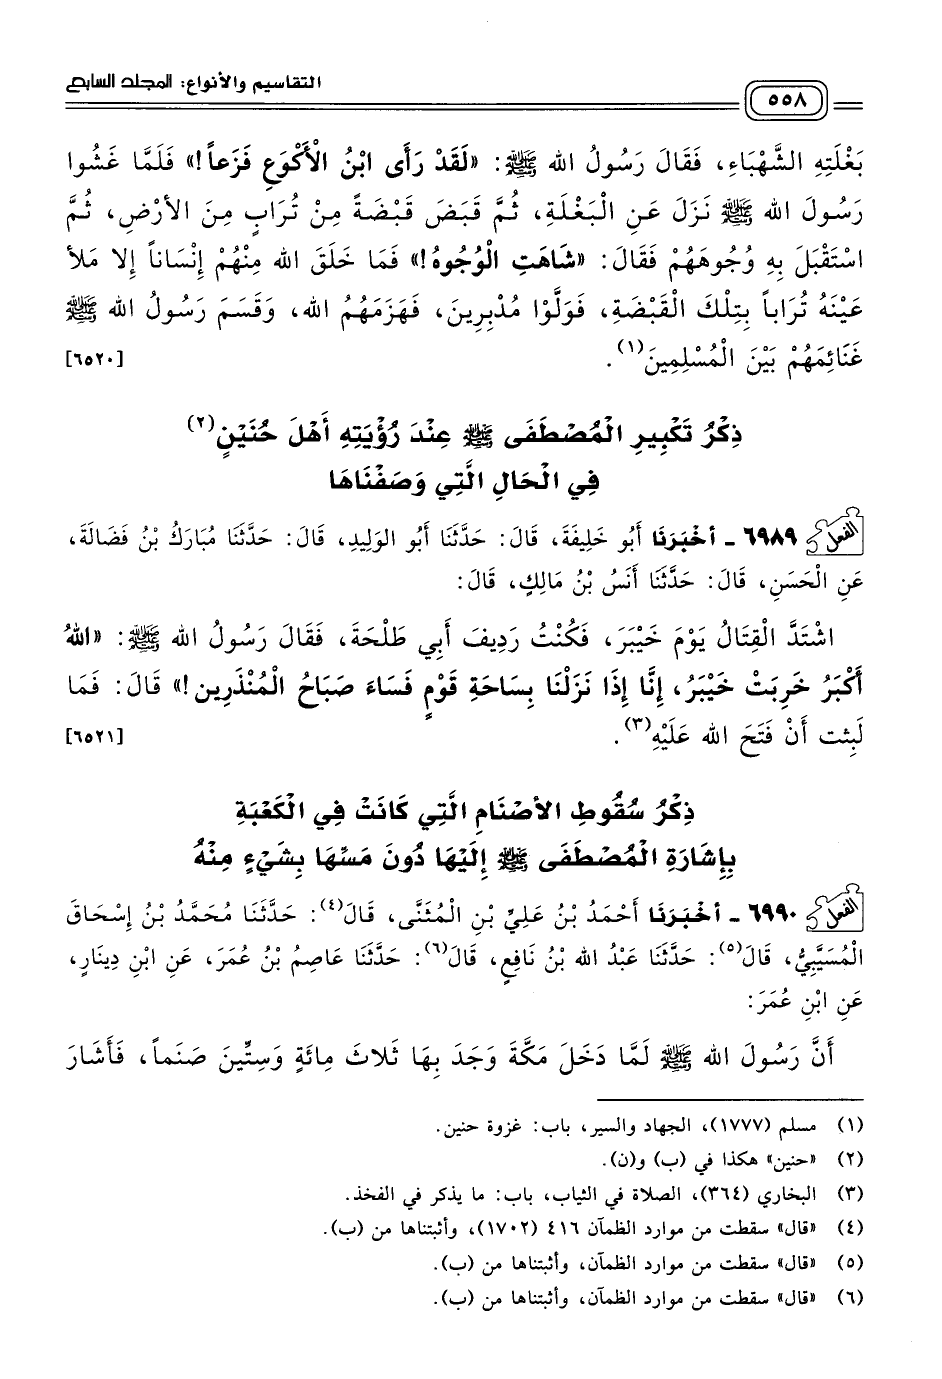 التقاسيم والأنواع: المجلد السابع
٥٥٨
بَغْلَتِهِ الشَّهْبَاءِ، فَقَالَ رَسُولُ الله ﷺ: «لَقَدْ رَأَى ابْنُ الْأَكْوَعِ فَزَعاً!» فَلَمَّا غَشُوا
رَسُولَ الله ﷺ نَزَلَ عَنِ الْبَغْلَةِ، ثُمَّ قَبَضَ قَبْضَةً مِنْ تُرَابٍ مِنَ الأرْضِ، ثُمَّ
اسْتَقْبَلَ بِهِ وُجُوهَهُمْ فَقَالَ: «شَاهَتِ الْوُجُوهُ!» فَمَا خَلَقَ الله مِنْهُمْ إِنْسَاناً إِلا مَلأ
عَيْنَهُ تُرَاباً بِتِلْكَ الْقَبْضَةِ، فَوَلَّوْا مُدْبِرِينَ، فَهَزَمَهُمُ الله، وَقَسَمَ رَسُولُ الله ﷺ
غَنَائِمَهُمْ بَيْنَ الْمُسْلِمِينَ(١). [٦٥٢٠]
ذِكْرُ تَكْبِيرِ الْمُصْطَفَى ﷺ عِنْدَ رُؤْيَتِهِ أَهْلَ حُنَيْنٍ(٢)
فِي الْحَالِ الَّتِي وَصَفْنَاهَا
الفعل ٦٩٨٩ - أخْبَرَنَا أَبُو خَلِيفَةَ، قَالَ: حَدَّثَنَا أَبُو الوَلِيدِ، قَالَ: حَدَّثَنَا مُبَارَكُ بْنُ فَضَالَةَ،
عَنِ الْحَسَنِ، قَالَ: حَدَّثَنَا أَنَسُ بْنُ مَالِكٍ، قَالَ:
اشْتَدَّ الْقِتَالُ يَوْمَ خَيْبَرَ، فَكُنْتُ رَدِيفَ أَبِي طَلْحَةَ، فَقَالَ رَسُولُ الله ﷺ: «اللهُ
أَكْبَرُ خَرِبَتْ خَيْبَرُ، إِنَّا إِذَا نَزَلْنَا بِسَاحَةِ قَوْمٍ فَسَاءَ صَبَاحُ الْمُنْذَرِين!» قَالَ: فَمَا
لَبِثت أَنْ فَتَحَ الله عَلَيْهِ(٣). [٦٥٢١]
ذِكْرُ سُقُوطِ الأصْنَامِ الَّتِي كَانَتْ فِي الْكَعْبَةِ
بِإِشَارَةِ الْمُصْطَفَى ﷺ إِلَيْهَا دُونَ مَسِّهَا بِشَيْءٍ مِنْهُ
الفعل ٦٩٩٠ - أخْبَرَنَا أَحْمَدُ بْنُ عَلِيِّ بْنِ الْمُثَنَّى، قَالَ(٤): حَدَّثَنَا مُحَمَّدُ بْنُ إِسْحَاقَ
الْمُسَيَّبِيُّ، قَالَ(٥): حَدَّثَنَا عَبْدُ الله بْنُ نَافِعٍ، قَالَ(٦): حَدَّثَنَا عَاصِمُ بْنُ عُمَرَ، عَنِ ابْنِ دِينَارٍ،
عَنِ ابْنِ عُمَرَ:
أَنَّ رَسُولَ الله ﷺ لَمَّا دَخَلَ مَكَّةَ وَجَدَ بِهَا ثَلاثَ مِائَةٍ وَسِتِّينَ صَنَماً، فَأَشَارَ
(١) مسلم (١٧٧٧)، الجهاد والسير، باب: غزوة حنين.
(٢) «حنين» هكذا في (ب) و(ن).
(٣) البخاري (٣٦٤)، الصلاة في الثياب، باب: ما يذكر في الفخذ.
(٤) «قال» سقطت من موارد الظمآن ٤١٦ (١٧٠٢)، وأثبتناها من (ب).
(٥) «قال» سقطت من موارد الظمآن، وأثبتناها من (ب).
(٦) «قال» سقطت من موارد الظمآن، وأثبتناها من (ب).